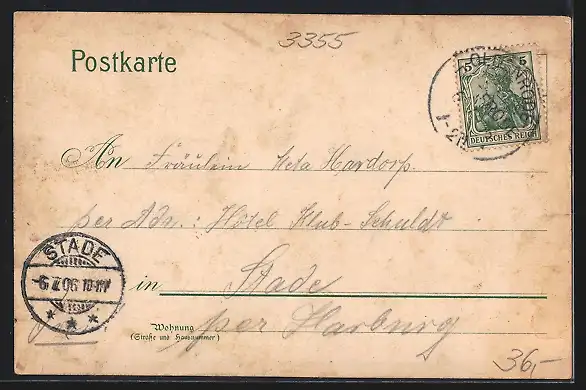 3355
Postkarte
5 5
DEUTSCHES REICH
An Fräulein Meta Hardorp.
per Adr.: Hôtel Klub-Schuldt
STADE
-6.7.06 10-11V
in Stade
Wohnung
(Straße und Hausnummer)
per Harburg
36,-